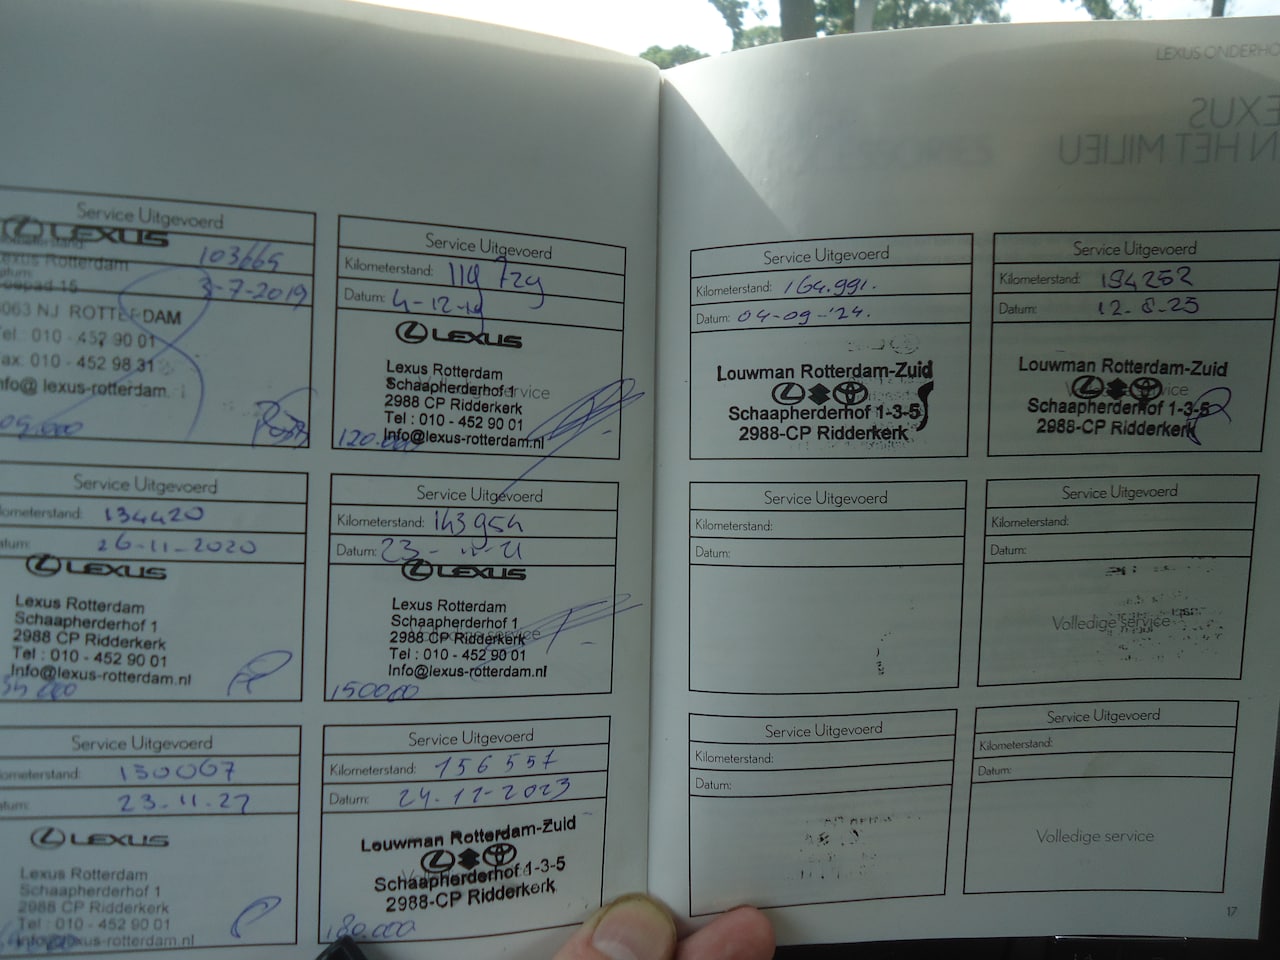 LEXUS ONDERHO
EXUS
N HET MILIEU
Service Uitgevoerd
LEXUS
103669
exus Rotterdam
3-7-2019
3063 NJ ROTTERDAM
Tel: 010 - 452 90 01
ax: 010 - 452 98 31
nfo@lexus-rotterdam.
Service Uitgevoerd
Kilometerstand: 119 729
Datum: 4-12-19
LEXUS
Lexus Rotterdam
Schaapherderhof 1
2988 CP Ridderkerk
Tel : 010 - 452 90 01
Info@lexus-rotterdam.nl
120.000
Service Uitgevoerd
lometerstand: 134420
atum: 26-11-2020
LEXUS
Lexus Rotterdam
Schaapherderhof 1
2988 CP Ridderkerk
Tel : 010 - 452 90 01
Info@lexus-rotterdam.nl
Service Uitgevoerd
Kilometerstand: 143954
Datum: 23-11-21
LEXUS
Lexus Rotterdam
Schaapherderhof 1
2988 CP Ridderkerk
Tel : 010 - 452 90 01
Info@lexus-rotterdam.nl
150000
Service Uitgevoerd
lometerstand: 150067
atum: 23.11.22
LEXUS
Lexus Rotterdam
Schaapherderhof 1
2988 CP Ridderkerk
Tel : 010 - 452 90 01
Info@lexus-rotterdam.nl
Service Uitgevoerd
Kilometerstand: 156557
Datum: 24.12-2023
Louwman Rotterdam-Zuid
Schaapherderhof 1-3-5
2988-CP Ridderkerk
180.000
Service Uitgevoerd
Kilometerstand: 164.991.
Datum: 04-09-'24.
Louwman Rotterdam-Zuid
Schaapherderhof 1-3-5
2988-CP Ridderkerk
Service Uitgevoerd
Kilometerstand: 194252
Datum: 12-8-25
Louwman Rotterdam-Zuid
Schaapherderhof 1-3-5
2988-CP Ridderkerk
Service Uitgevoerd
Kilometerstand:
Datum:
Service Uitgevoerd
Kilometerstand:
Datum:
Volledige service
Service Uitgevoerd
Kilometerstand:
Datum:
Service Uitgevoerd
Kilometerstand:
Datum:
Volledige service
17